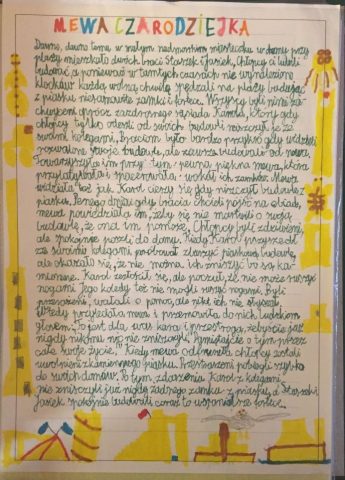 MEWA CZARODZIEJKA
Dawno, dawno temu w małym nadmorskim miasteczku w domu przy
plaży mieszkało dwóch braci Staszek i Jasiek, chłopcy ci lubili
budować, a ponieważ w tamtych czasach nie wynaleziono
klocków każdą wolną chwilę spędzali na plaży budując
z piasku niesamowite zamki i fortece. Wszyscy byli nimi za-
chwyceni oprócz zazdrosnego sąsiada Karola, który gdy
chłopcy tylko odeszli od swoich budowli niszczył je ze
swoimi kolegami. Braciom było bardzo przykro gdy widzieli
rozwalone swoje budowle, ale zawsze budowali od nowa.
Towarzyszyła im przy tym pewna piękna mewa, która
przylatywała i spacerowała wokół ich zamków. Mewa
widziała też jak Karol cieszy się gdy niszczył budowle z
piasku. Pewnego dnia gdy bracia chcieli pójść na obiad,
mewa powiedziała im, żeby się nie martwili o swoją
budowlę, że ona im pomoże. Chłopcy byli zdziwieni,
ale spokojnie poszli do domu. Kiedy Karol przyszedł
ze swoimi kolegami, próbował zburzyć piaskową budowlę,
ale okazało się, że nie można ich zniszczyć bo są ka-
mienne. Karol zezłościł się, ale poczuł, że nie może ruszyć
nogami. Jego koledzy też nie mogli ruszyć nogami. Byli
przerażeni, wołali o pomoc, ale nikt ich nie słyszał.
Wtedy przyleciała mewa i przemówiła do nich ludzkim
głosem: "To jest dla was kara i przestroga, żebyście już
nigdy nikomu nic nie zniszczyli." "Pamiętajcie o tym przez
całe swoje życie." Kiedy mewa odleciała chłopcy zostali
uwolnieni z kamiennego piasku. Przestraszeni pobiegli szybko
do swoich domów. Po tym zdarzeniu Karol z kolegami
nie zniszczyli już nigdy żadnego zamku z piasku, a Staszek i
Jasiek spokojnie budowali coraz to wspanialsze fortece.